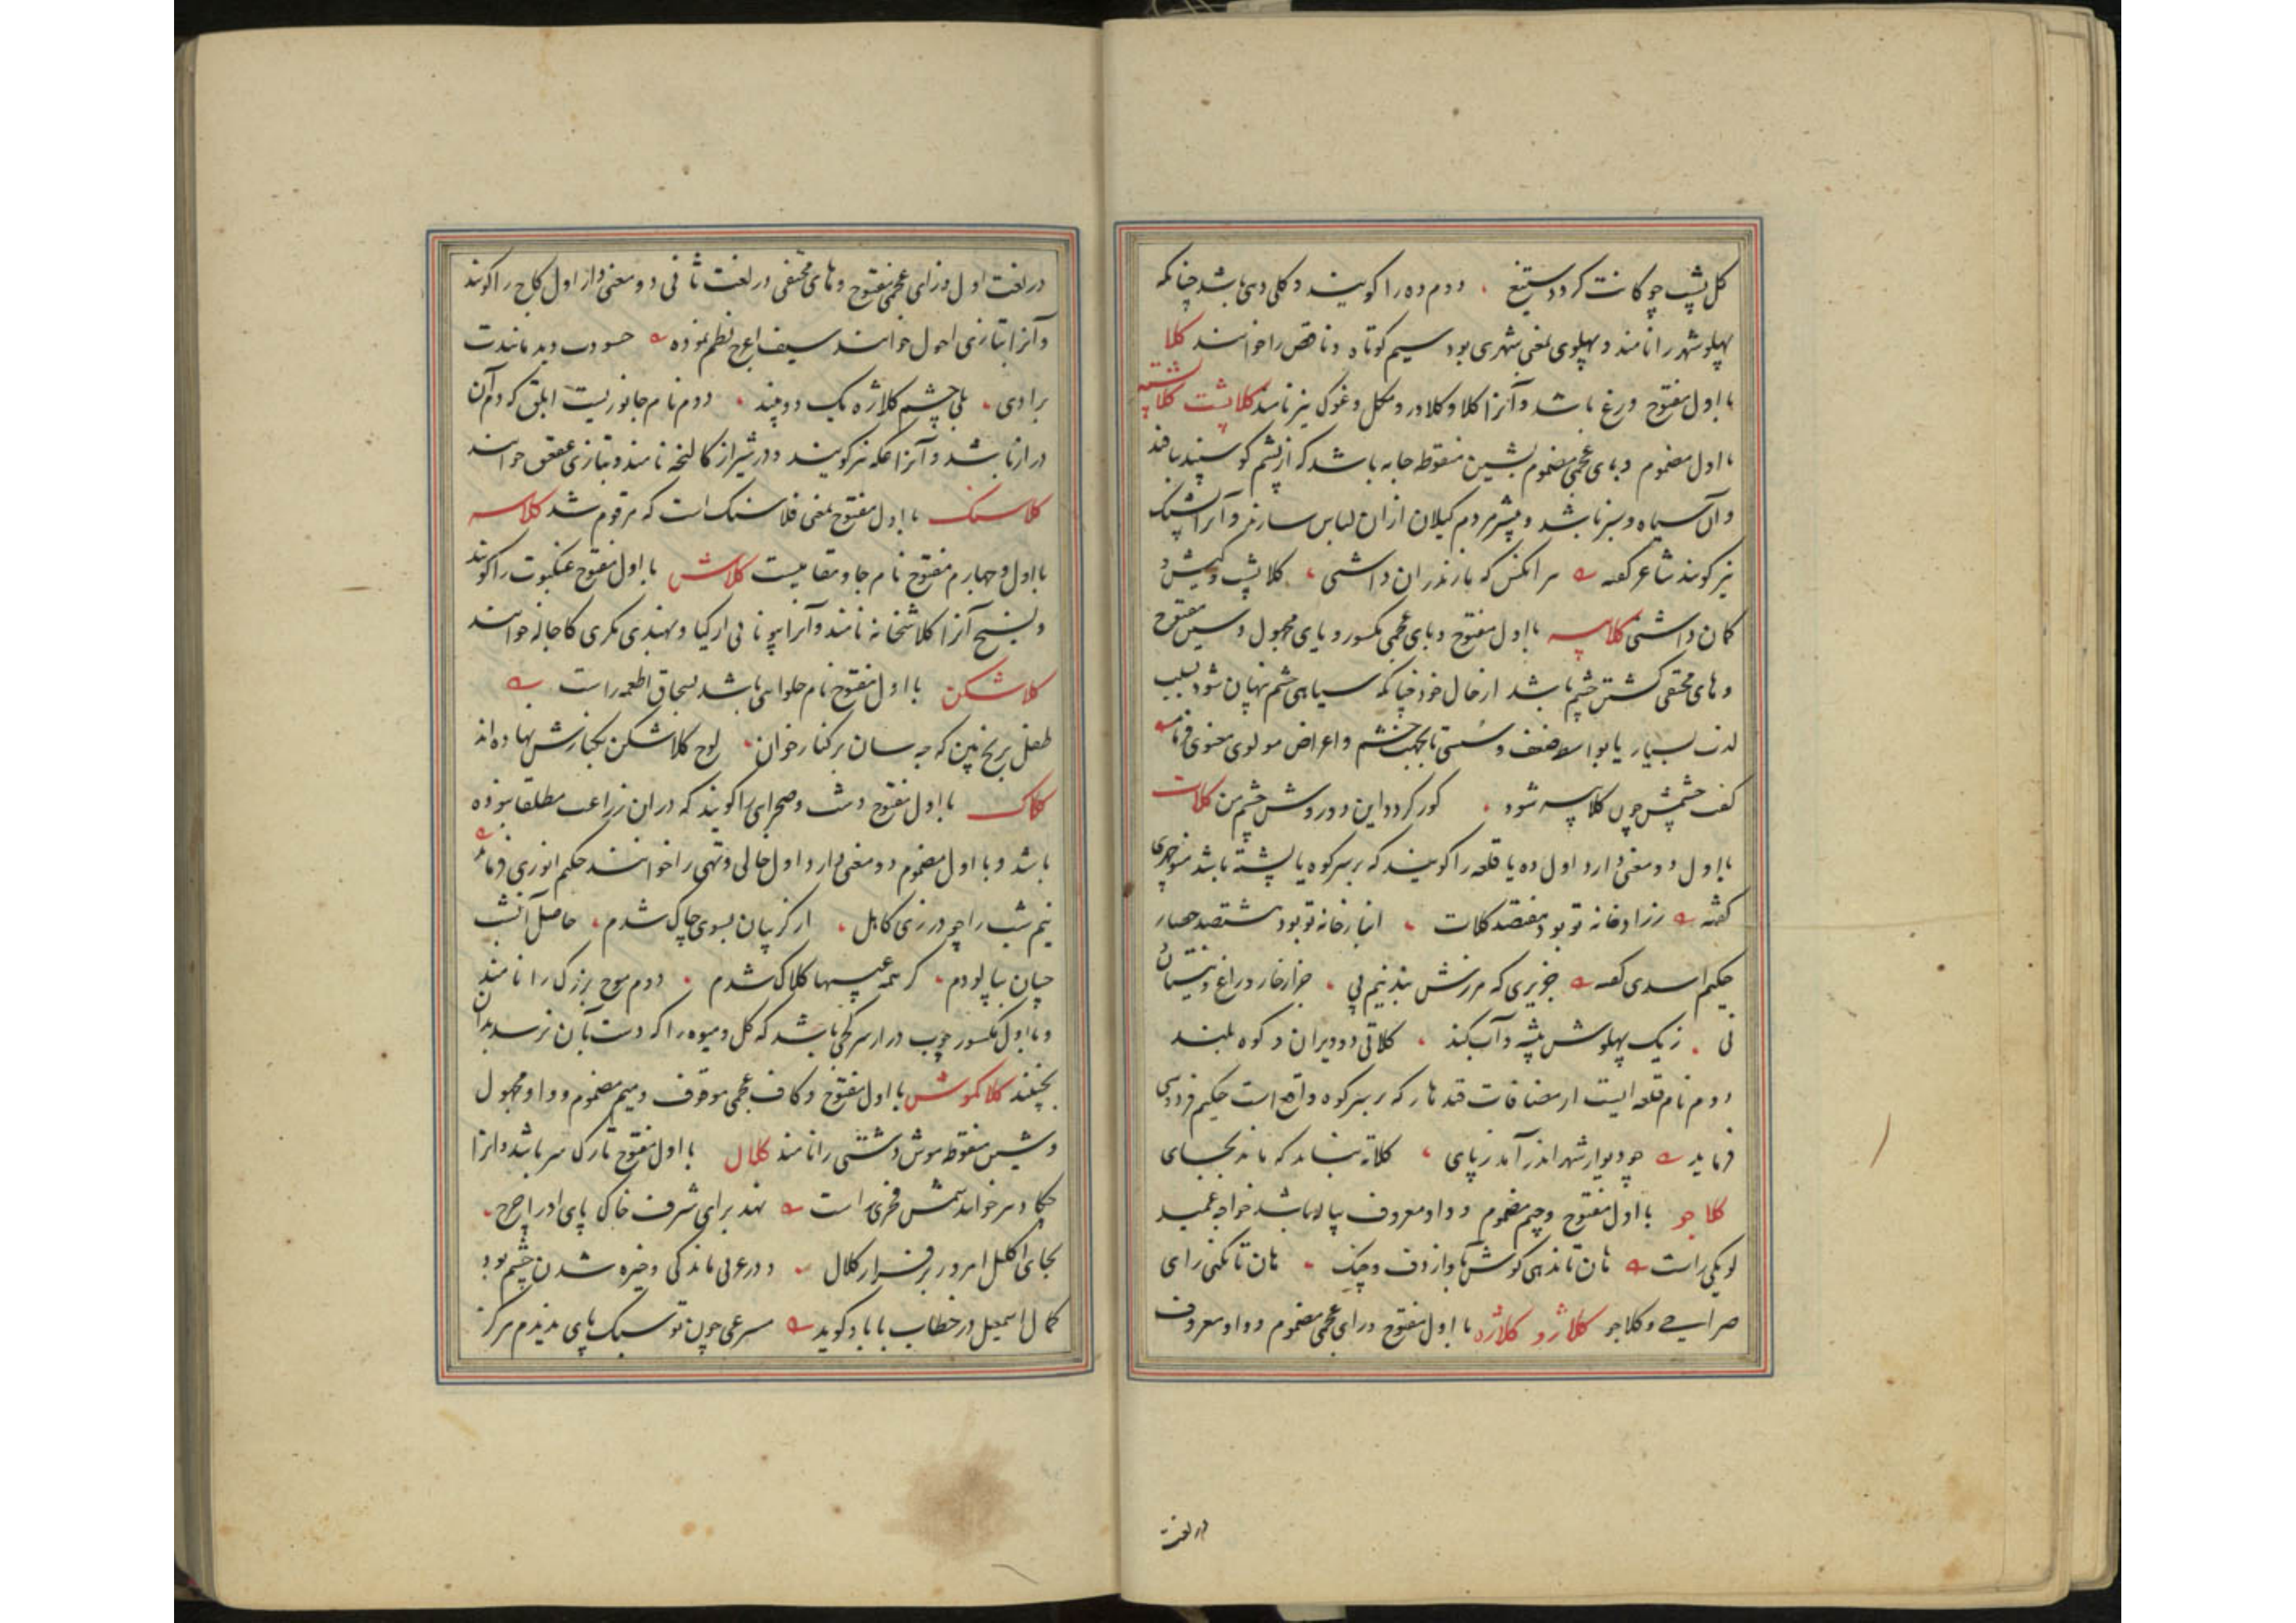 کل پشت چوکانت کردد ستیغ ، دوم ده را کویند و کلی دهی باشد چنانکه
پهلو شهر را نامند و پهلوی یعنی شهری بود سیم کوتاه و ناقص را خوانند کلا
با اول مفتوح وزغ باشد و آنرا کلاو و کلاور و مکل و غوک نیز نامند کلاپشت کلاپشته
با اول مضموم و بای عجمی مضموم بشین منقوطه جامه باشد که از پشم کوسپند بافند
و آن سیاه و سبز باشد و بیشتر مردم کیلان ازان لباس سازند و آنرا شپک
نیز کویند شاعر کفته مرا مکش که مازندران داشتی ، کلاپشت و کمیش و
کمان داشتی کلاپیسه با اول مفتوح و بای عجمی مکسور و یای مجهول و سین مفتوح
و های مختفی کشتن چشم باشد از حال خود چنانکه سیاهی چشم نهان شود بسبب
لذت بسیار یا بواسطه ضعف و سستی یا بجهت خشم و اعراض مولوی معنوی فرماید
کفت چشمش چون کلاپیسه شود ، کور کردد این دو درویش چشم من کلات
با اول دو معنی دارد اول ده یا قلعه را کویند که بر سر کوه یا پشته باشد منوچهری
کفته رزادخانه تو بود هفتصد کلات ، انبارخانه تو بود هشتصد حصار
حکیم اسدی کفته جزیری که مرزش بد نیم پی ، جز از خار و راغ و نیستان
نی . ز یک پهلوش بیشه و آب کند ، کلاتی دو ویران و کوه بلند
دوم نام قلعه ایست از مضافات قندهار که بر سر کوه واقع است حکیم فردوسی
فرماید چو دیوار شهر اندر آمد ز پای ، کلاته نباید که ماند بجای
کلاجو با اول مفتوح و جیم مضموم و واو معروف پیاله باشد خواجه عمید
لویکی راست هان تا ندهی کوش باواز دف و چنک ، هان تا نکنی رای
صراحی و کلاجو کلاژو کلاژه با اول مفتوح و زای عجمی مضموم و واو معروف
در لغت
در لغت اول و زای عجمی مفتوح و های مختفی در لغت ثانی دو معنی دارد اول کاج را کویند
و آنرا بتازی احول خوانند سیف اعرج نظم نموده حسودت دید مانندت
برادی ، بلی چشم کلاژه یک دو بیند ، دوم نام جانوریست ابلق که دم آن
دراز باشد و آنرا عکه نیز کویند و در شیراز کالنجه نامند و بتازی عقعق خوانند
کلاسنک با اول مفتوح بمعنی فلاسنک است که مرقوم شد کلاسه
با اول و چهارم مفتوح نام جا و مقامیست کلاش با اول مفتوح عنکبوت را کویند
و نسیج آنرا کلاشخانه نامند و آنرا بیونانی ارکیا و بهندی مکری کا جاله خوانند
کلاشکن با اول مفتوح نام حلوایی باشد بسحاق اطعمه راست
طفل برنج بین که چه سان بر کنار خوان ، لوح کلاشکن بکنارش نهاده اند
کلاک با اول مفتوح دشت و صحرایی را کویند که دران زراعت مطلقا نبوده
باشد و با اول مضموم دو معنی دارد اول خالی و تهی را خوانند حکیم انوری فرماید
نیم شب را چو درزی کاهل ، از کریبان بسوی چاک شدم ، حاصل آنشب
چنان بپالودم ، کز همه عیبها کلاک شدم ، دوم موج بزرک را نامند
و با اول مکسور چوب دراز سر کجی باشد که کل و میوه را که دست بآن نرسد بدان
بچینند کلاکموش با اول مفتوح و کاف عجمی موقوف و میم مضموم و واو مجهول
و شین منقوطه موش دشتی را نامند کلال با اول مفتوح تارک سر باشد و آنرا
چکاد نیز خوانند شمس فخری راست نهد برای شرف خاک پای او را چرخ ،
بجای اکلیل امروز بر فراز کلال ، و در عربی ماندکی و خیره شدن چشم بود
کمال اسمعیل در خطاب با باد کوید مسرعی چون تو سبک پای ندیدم هرکز